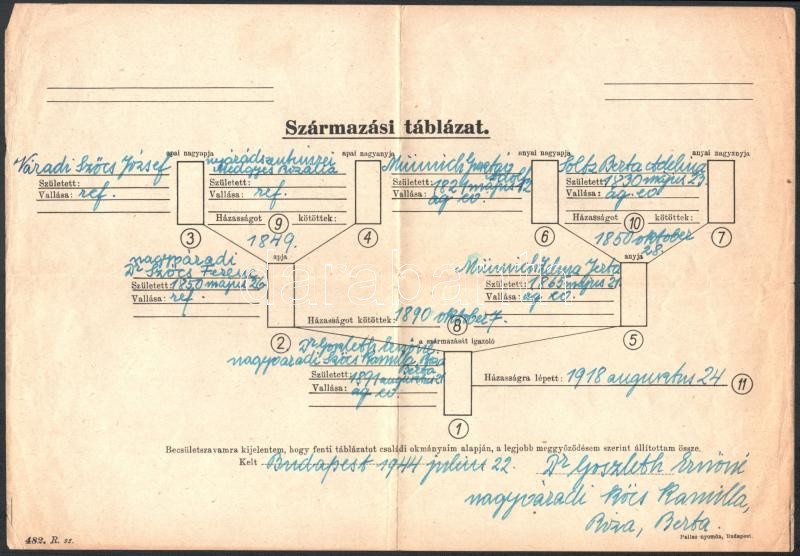 Származási táblázat.
apai nagyapja
Váradi Szőcs József
Született:
Vallása: ref.
③
apai nagyanyja
nyárádszentimrei
Született:
Vallása: ref.
Házasságot ⑨ kötöttek:
1849.
④
anyai nagyapja
Münnich Gusztáv
Adolf
Született: 1821 május 12
Vallása: ág. ev.
⑥
anyai nagyanyja
Soltz Berta Adelina
Született: 1830 május 23.
Vallása: ág. ev.
Házasságot ⑩ kötöttek:
1850 október
28.
⑦
apja
nagyváradi
Dr Szőcs Ferenc
Született: 1850 május 26
Vallása: ref.
②
Házasságot kötöttek: 1890 október 7.
⑧
anyja
Münnich Ilona Berta
Született: 1865 május 21.
Vallása: ág. ev.
⑤
a származását igazoló
Dr Goszleth Ernőné
nagyváradi Szőcs Kamilla Róza
Berta
Született: 1891 augusztus 21
Vallása: ág. ev.
①
Házasságra lépett: 1918 augusztus 24
⑪
Becsületszavamra kijelentem, hogy fenti táblázatot családi okmányaim alapján, a legjobb meggyőződésem szerint állítottam össze.
Kelt Budapest 1944 július 22.
Dr Goszleth Ernőné
nagyváradi Szőcs Kamilla,
Róza, Berta.
482. R. sz.
Pallas nyomda, Budapest.
darabanth